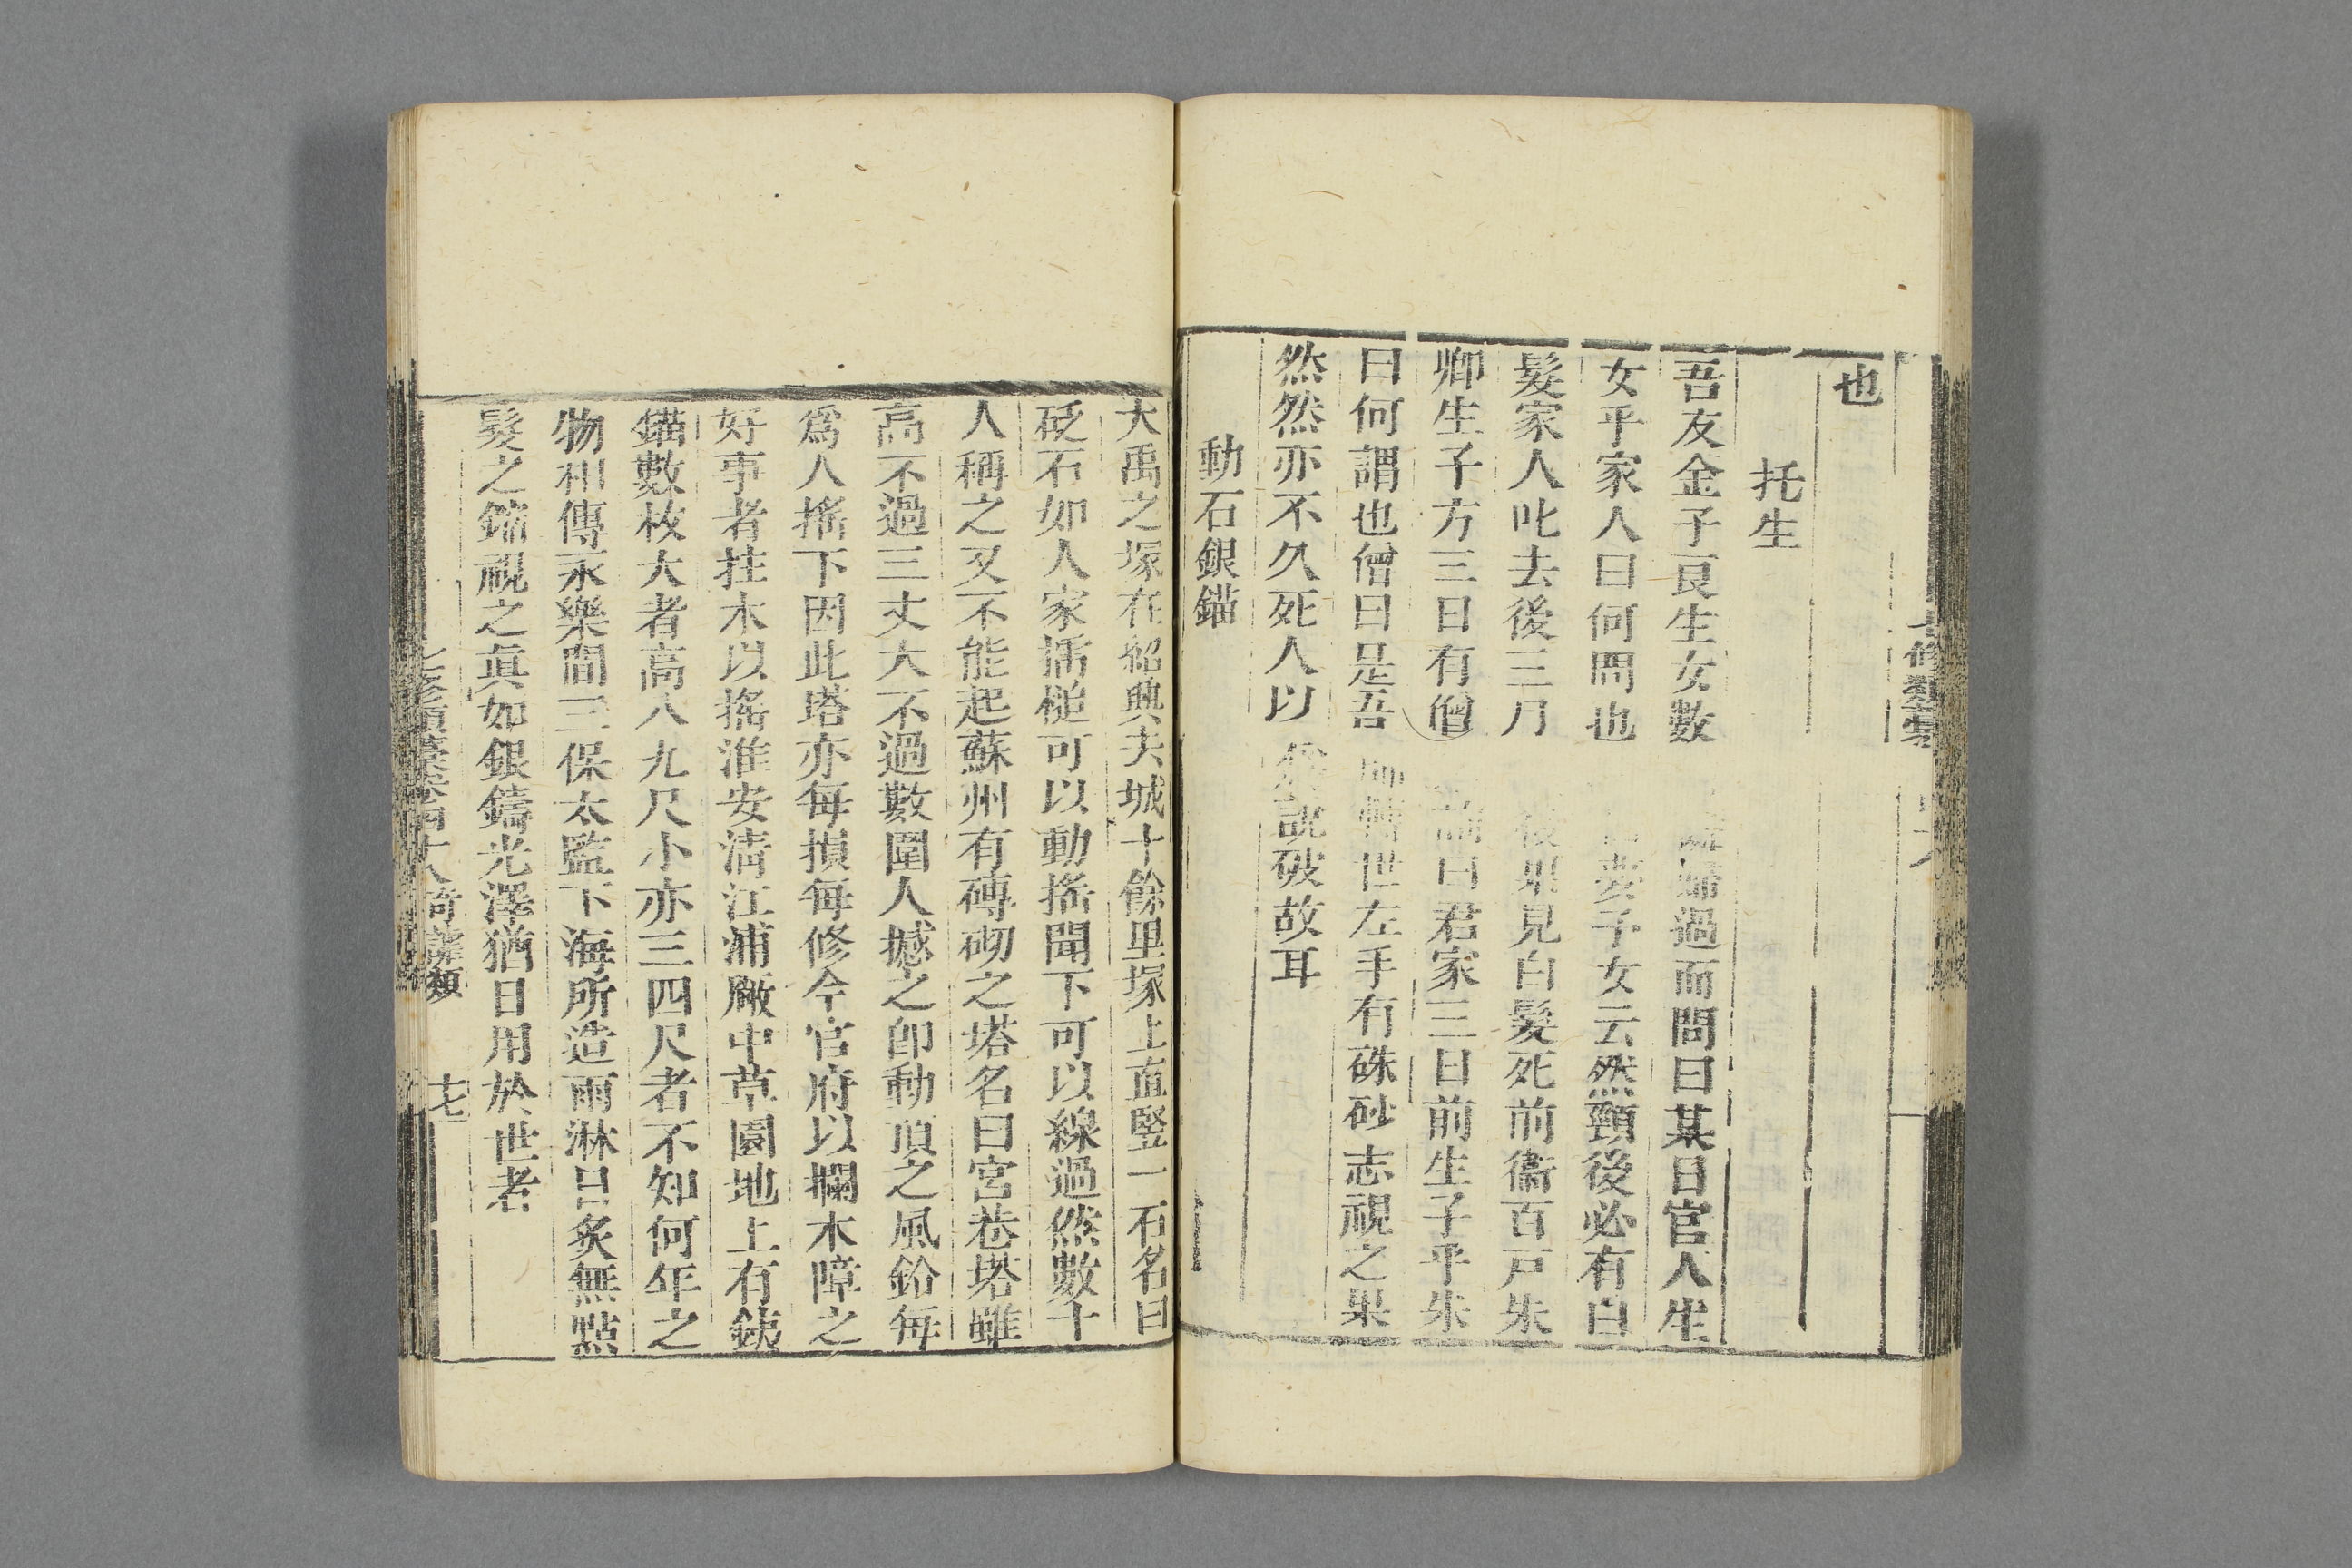 也
托生
吾友金子良生女數 婦過而問曰某日官人生
女乎家人曰何問也 妻子女云然頸後必有白
髮家人叱去後三月 後果見白髮死前衞百戸朱
卿生子方三日有僧 曰君家三日前生子乎朱
曰何謂也僧曰是吾師轉世左手有硃砂志視之果
然然亦不久死人以 說破故耳
動石銀錨
大禹之塚在紹興去城十餘里塚上直竪一石名曰
砭石如人家搖槌可以動搖聞下可以線過然數十
人稱之又不能起蘇州有磚砌之塔名曰宮巷塔雖
高不過三丈大不過數圍人撼之卽動頂之風鈴每
爲人搖下因此塔亦每損每修今官府以攔木障之
好事者拄木以搖淮安淸江浦厰中草園地上有鉄
錨數枚大者高八九尺小亦三四尺者不知何年之
物相傳永樂間三保太監下海所造雨淋日炙無點
髮之鏽視之眞如銀鑄光澤猶日用於世者
七修類藁 奇謔類 十七